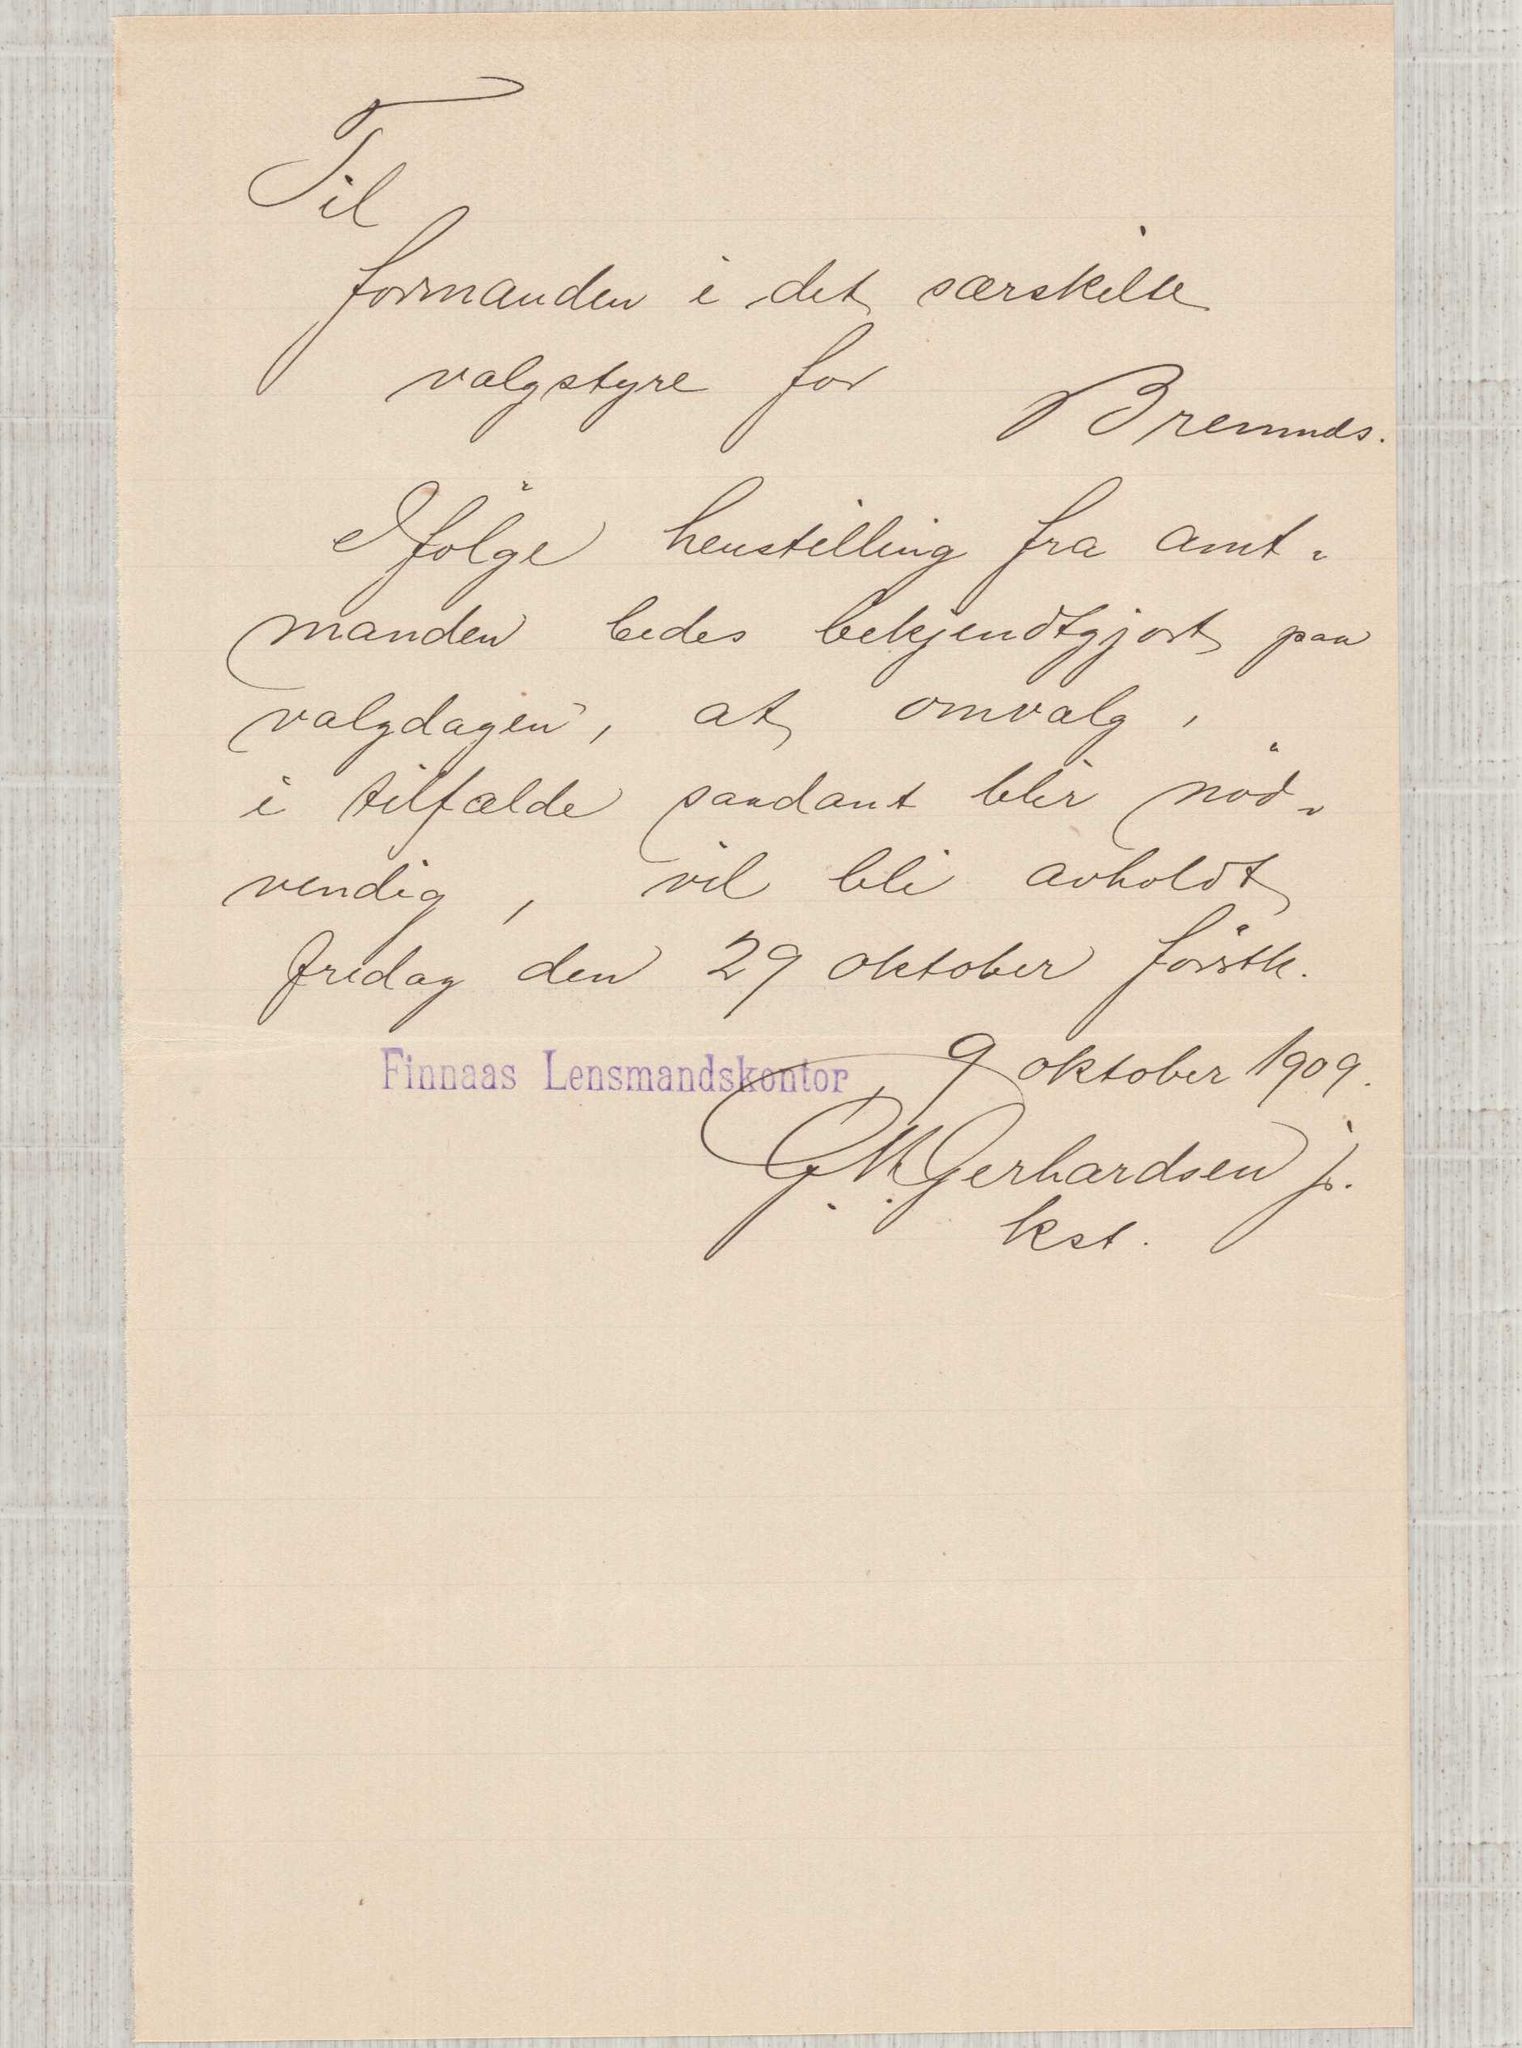 Til
formanden i det særskilte
valgstyre for Bremnds.
Ifölge henstilling fra amt-
manden bedes bekjendtgjort paa
valgdagen, at omvalg,
i tilfælde saadant blir nöd-
vendig, vil bli avholdt
fredag den 29 oktober förstk.
Finnaas Lensmandskontor, 9 oktober 1909.
G. M. Gerhardsen jr.
kst.